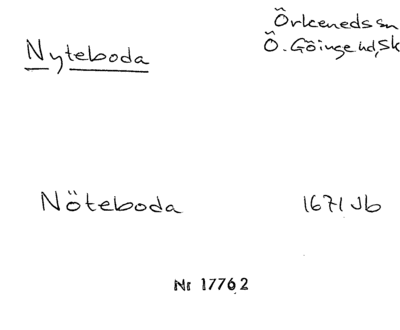 Örkeneds sn
Nyteboda
Ö. Göinge hd, Sk
Nöteboda 1671 Jb
Nr 17762